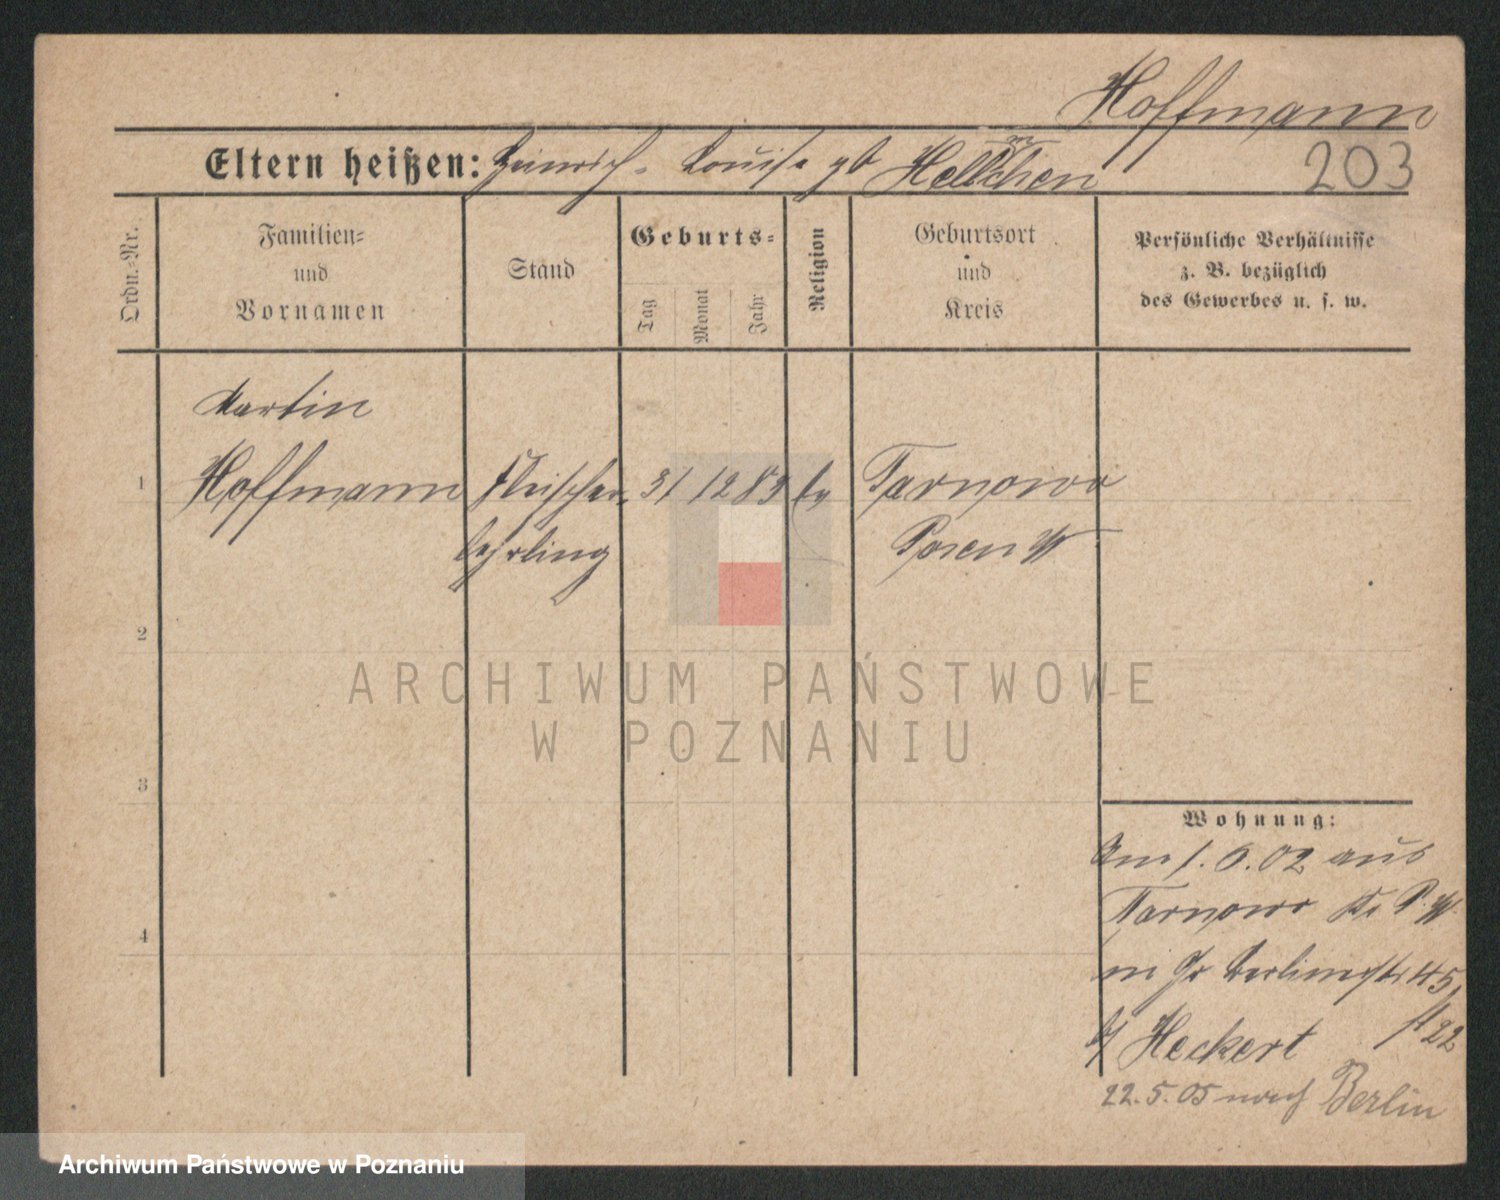 Hoffmann
Eltern heißen: Heinrich. Louise gb
203
Ordn.-Nr.
Familien-
und
Vornamen
Stand
Geburts-
Tag
Monat
Jahr
Religion
Geburtsort
und
Kreis
Persönliche Verhältnisse
z. B. bezüglich
des Gewerbes u. s. w.
Martin
1 Hoffmann Fleischer 31 12 83 Ev Tarnowo
lehrling Posen W
2
ARCHIWUM PAŃSTWOWE
W POZNANIU
3
Wohnung:
Am 1. 6. 02 aus
Tarnowo Kr P. W.
4
in Gr Berlinerstr 45,
b/ Heckert
22. 5. 05 nach Berlin
Archiwum Państwowe w Poznaniu